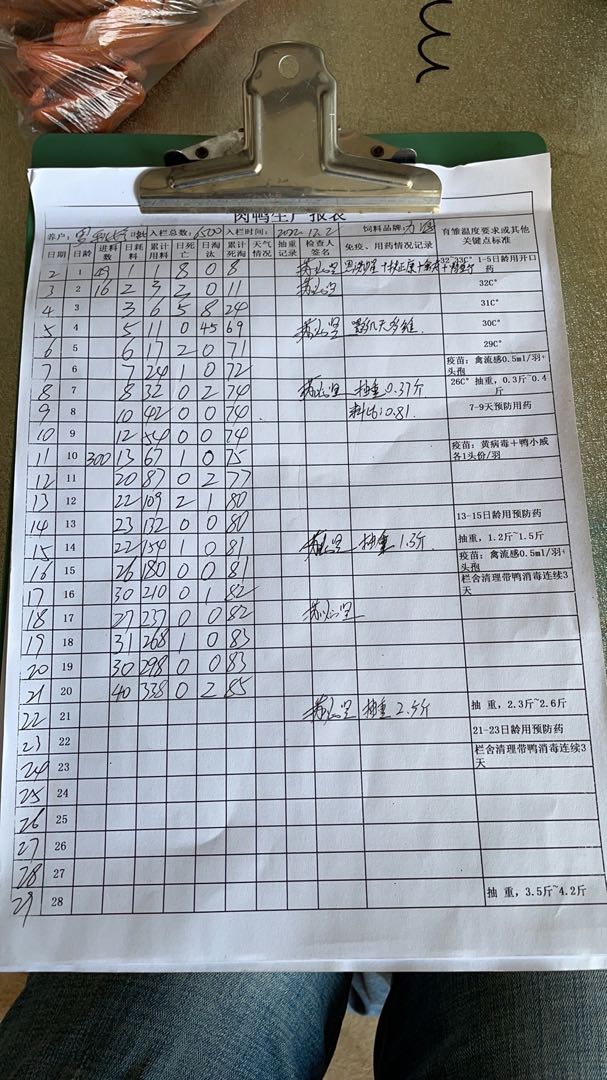 肉鸭生产报表
养户: 入栏总数: 6500 入栏时间: 2022.12.2 饲料品牌: 育雏温度要求或其他关键点标准
日期 日龄 进料数 日耗料 累计用料 日死亡 日淘汰 累计死淘 天气情况 抽重记录 检查人签名 免疫、用药情况记录
2 1 49 1 1 8 0 8 32~33C° 1-5日龄用开口药
3 2 16 2 3 2 0 11 32C°
4 3 3 6 5 8 24 31C°
5 4 5 11 0 45 69 30C°
6 5 6 17 2 0 71 29C°
7 6 7 24 1 0 72 疫苗:禽流感0.5ml/羽+头孢
8 7 8 32 0 2 74 抽重0.37斤 26C° 抽重,0.3斤~0.4斤
9 8 10 42 0 0 74 料比:0.81 7-9天预防用药
10 9 12 54 0 0 74
11 10 300 13 67 1 0 75 疫苗:黄病毒+鸭小威各1头份/羽
12 11 20 87 0 2 77
13 12 22 109 2 1 80
14 13 23 132 0 0 80 13-15日龄用预防药
15 14 22 154 1 0 81 抽重1.3斤 抽重,1.2斤~1.5斤
16 15 26 180 0 0 81 疫苗:禽流感0.5ml/羽+头孢
17 16 30 210 0 1 82 栏舍清理带鸭消毒连续3天
18 17 27 237 0 0 82
19 18 31 268 1 0 83
20 19 30 298 0 0 83
21 20 40 338 0 2 85
22 21 抽重2.5斤 抽 重,2.3斤~2.6斤
23 22 21-23日龄用预防药
24 23 栏舍清理带鸭消毒连续3天
25 24
26 25
27 26
28 27
29 28 抽 重,3.5斤~4.2斤